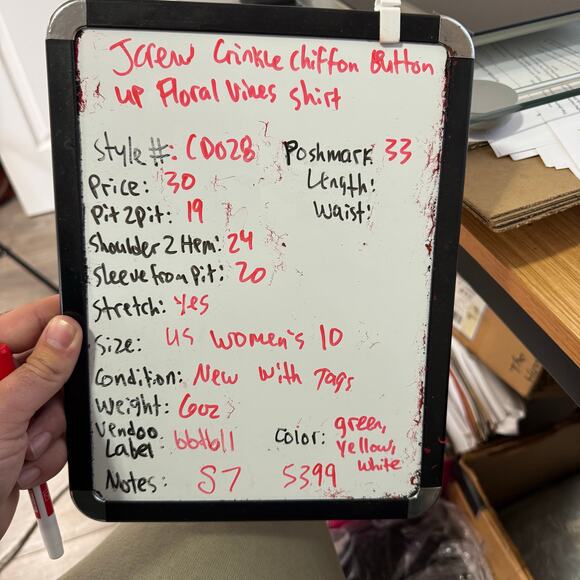 Jcrew Crinkle Chiffon Button
up Floral Vines Shirt
Style #: CD028
Poshmark 33
Price: 30
Length:
Pit 2 pit: 19
Waist:
Shoulder 2 Hem: 24
Sleeve from Pit: 20
Stretch: Yes
Size: US Women's 10
Condition: New With Tags
Weight: 6oz
Vendoo
Label:
Color: green,
yellow,
white
Notes: S7 5399